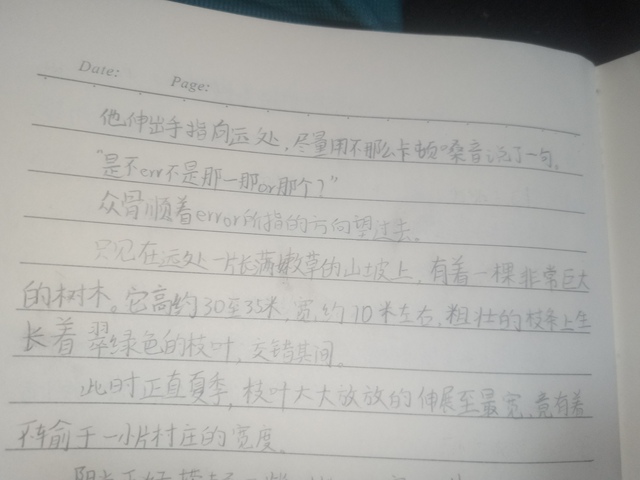 Date: Page:
他伸出手指向远处，尽量用不那么卡顿嗓音说了一句。
“是不err不是那一那or那个？”
众骨顺着error所指的方向望过去。
只见在远处一片长满嫩草的山坡上，有着一棵非常巨大
的树木。它高约30至35米，宽约10米左右，粗壮的枝条上生
长着翠绿色的枝叶，交错其间。
此时正直夏季，枝叶大大放放的伸展至最宽，竟有着
不输于一小片村庄的宽度。
阳光